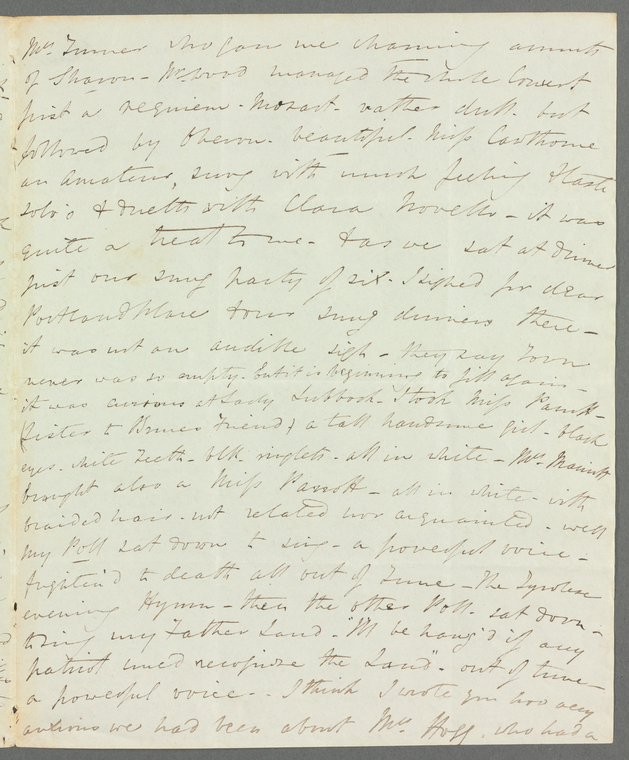 Mrs. Turner who gave me charming accounts
of Sharon - managed the whole Concert
first a requiem - Mozart - rather dull - but
followed by Oberon - beautiful - Miss
an Amateur, sung with much feeling & taste
solo's & duetts with Clara Novello - it was
quite a treat to me - & as we sat at dinner
just our snug party of six - I sighed for dear
Portland Place & our snug dinners there -
it was not an audible sigh - they say Town
never was so empty - but it is beginning to fill again -
it was curious at Lady Lubbock - I took Miss Parrott -
(sister to Friend) a tall handsome girl - black
eyes - white teeth - blk ringlets - all in white - Mrs.
brought also a Miss Parrott - all in white - with
braided hair - not related nor acquainted - well
my Poll sat down to sing - a powerful voice -
frighten'd to death all out of Tune - The Tyrolese
evening Hymn - then the other Poll - sat down -
to sing my Father Land - "I'll be hang'd if any
patriot wou'd recognize the Land" - out of tune -
a powerful voice - I think I wrote you how very
anxious we had been about Mrs. Hogg - who had a